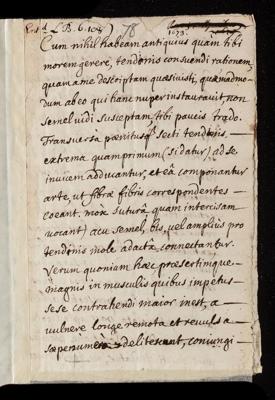 Ent.d L.B.6.104. 78
1673.
Cum nihil habeam antiquius quam tibi
morem gerere, tendinis consuendi rationem,
quam a me descriptam quæsivisti, quemadmo-
dum ab eo qui hanc nuper instauravit, non
semel vidi susceptam, tibi paucis trado.
Transversa pænitusq; secti tendinis —
extrema quamprimum (si datur) ad se
invicem adducantur, et eâ componantur
arte, ut fibræ fibris correspondentes —
coeant. mox suturâ quam intercisam
vocant) acu semel, bis, vel amplius pro
tendinis mole adactâ, connectantur.
Verum quoniam hæc præsertim que —
magnis in musculis quibus impetus —
sese contrahendi maior inest, a —
vulnere longe remota et revulsa —
sæpenumero delitescunt, coniungi —